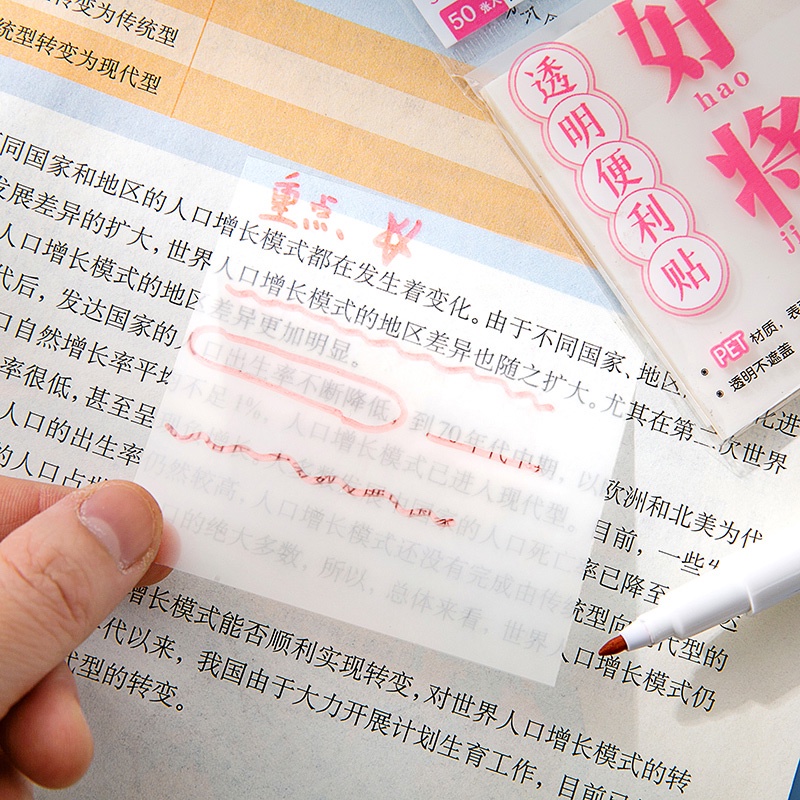 转变为传统型
统型转变为现代型
50张入
好
hao
将
透明便利贴
PET材质，表
透明不遮盖
重点
同国家和地区的人口增长模式都在发生着变化。由于不同国家、地区
发展差异的扩大，世界人口增长模式的地区差异也随之扩大。尤其在第二次世界
人口增长模式的地区差异更加明显。
代后，发达国家的人口出生率不断降低，到70年代中期，以欧洲和北美为代
口自然增长率平均不足1%，人口增长模式已进入现代型。目前，一些
率很低，甚至呈
人口的出生率仍然较高，人口增长模式还没有完成由传统型向现代型的
的人口占世界人口的绝大多数，所以，总体来看，世界人口增长模式仍
增长模式能否顺利实现转变，对世界人口增长模式的转
代以来，我国由于大力开展计划生育工作，目前已
代型的转变。